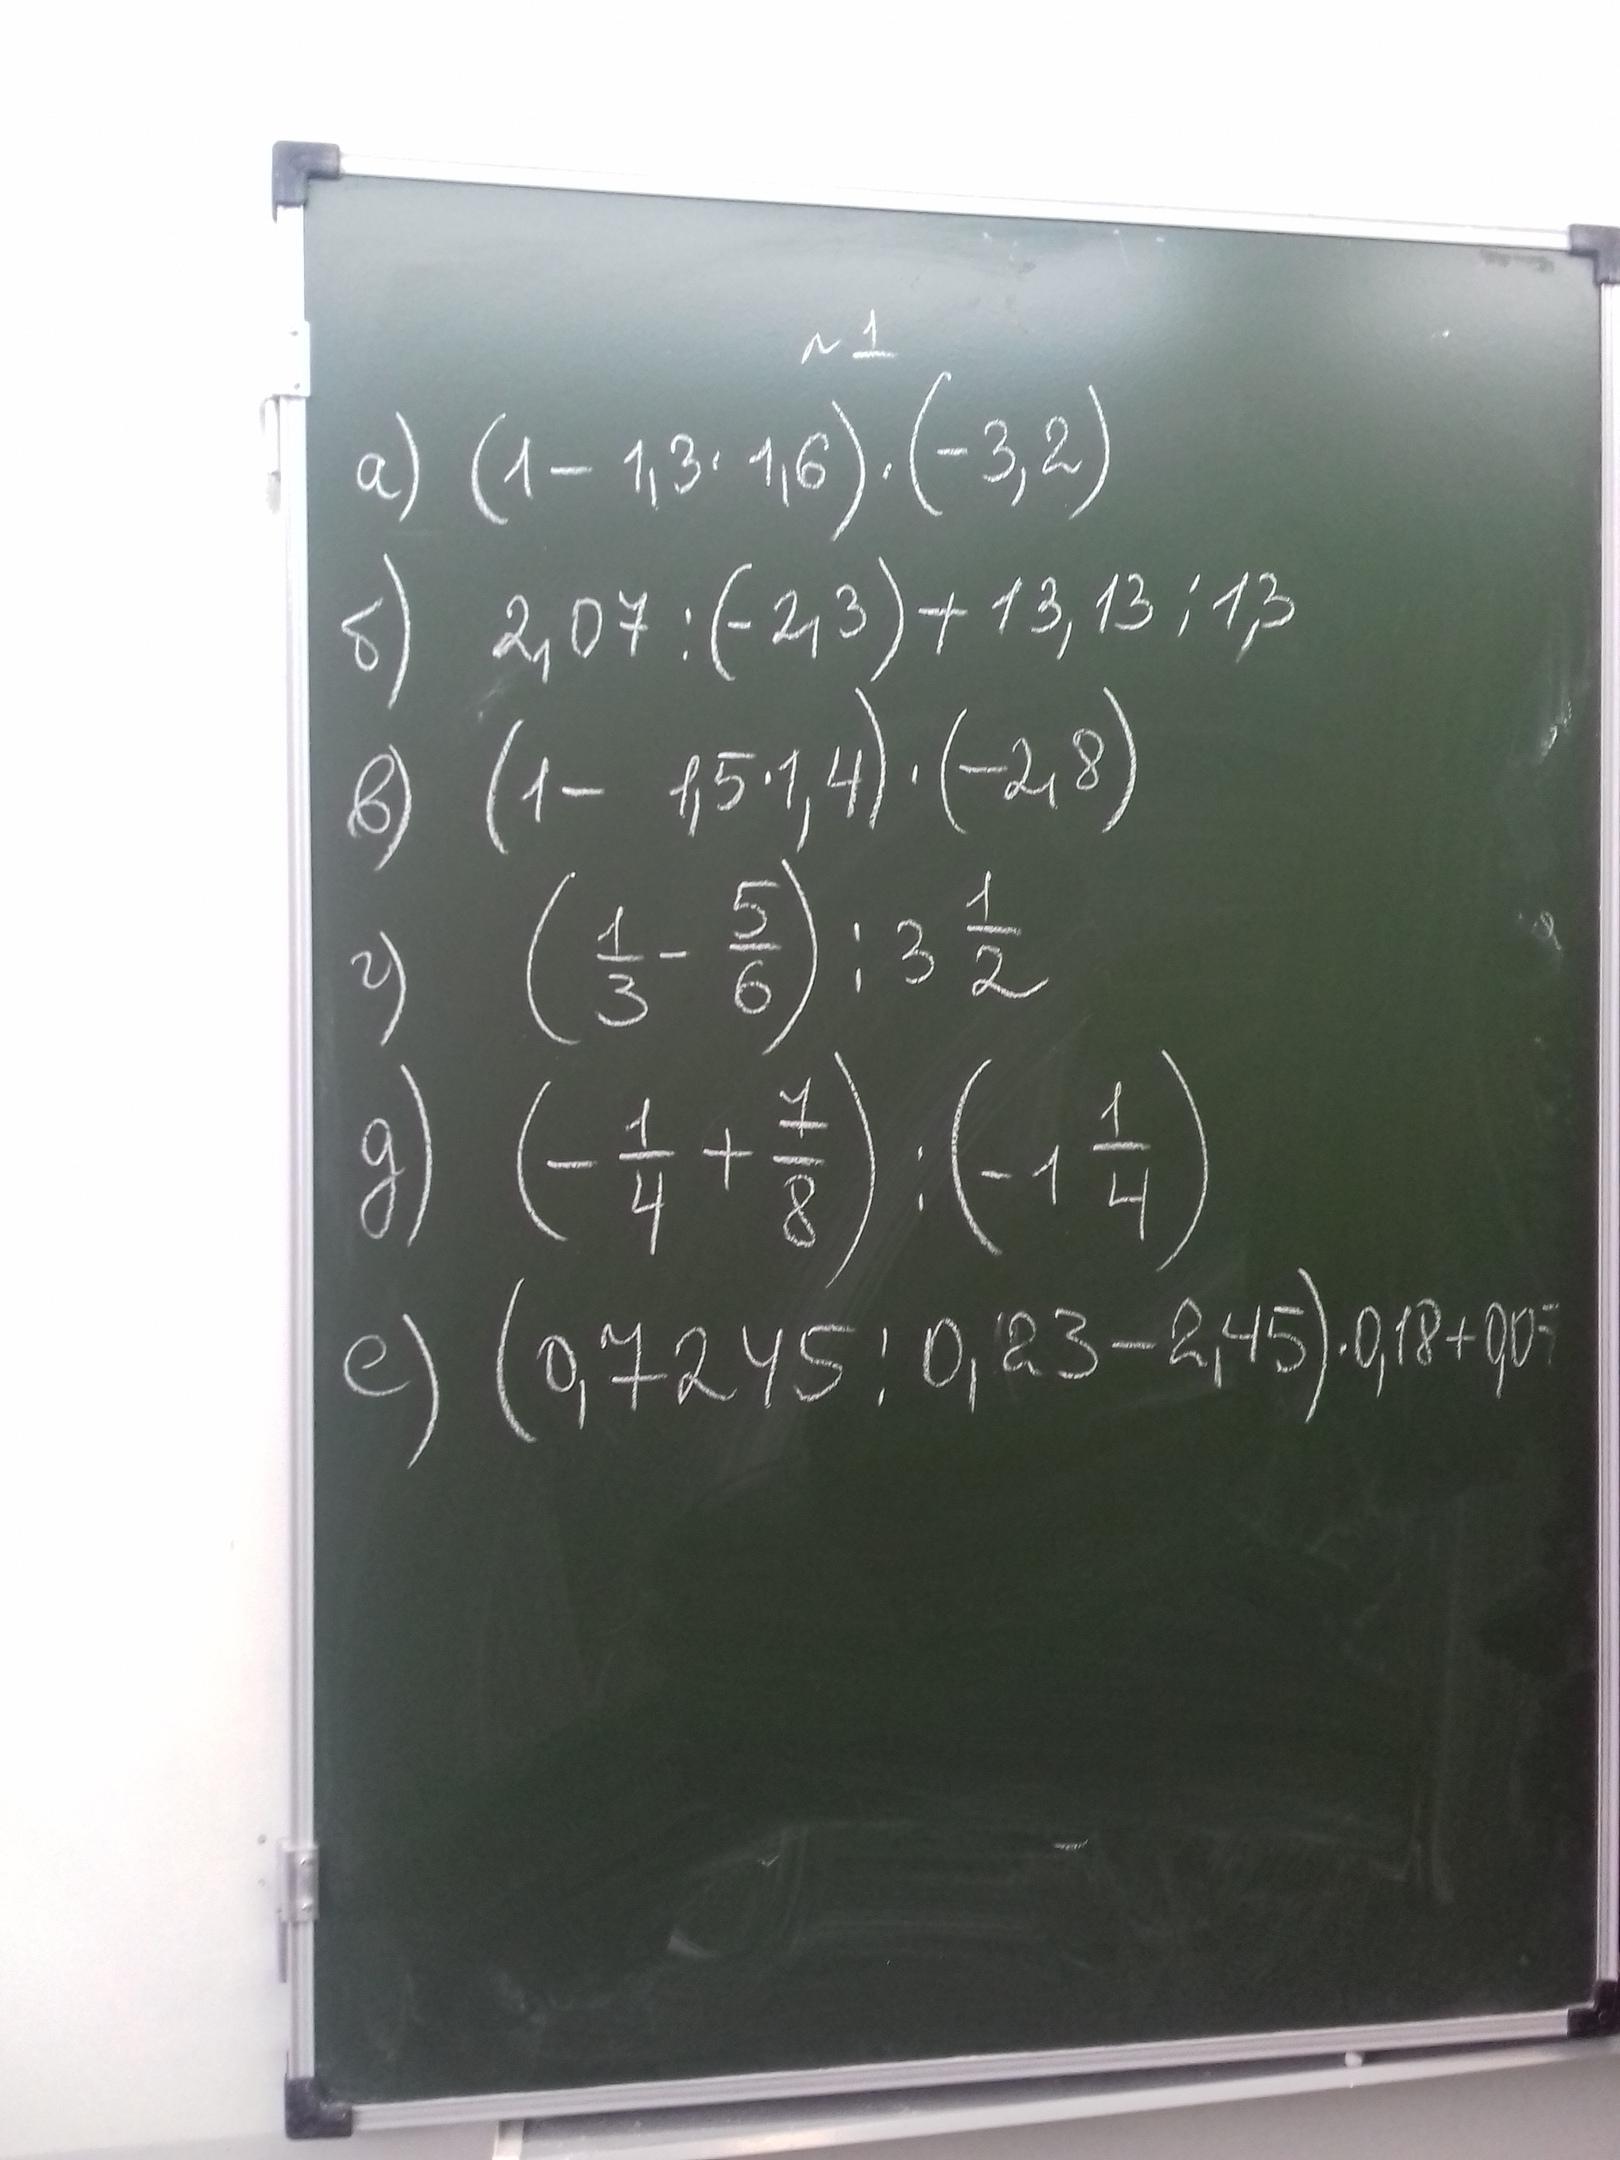 №1
а) (1 - 1,3 · 1,6) · (-3,2)
б) 2,07 : (-2,3) + 13,13 : 1,3
в) (1 - 1,5 · 1,4) · (-2,8)
г) (1/3 - 5/6) : 3 1/2
д) (-1/4 + 7/8) : (-1 1/4)
е) (0,7245 : 0,23 - 2,45) · 0,18 + 0,07